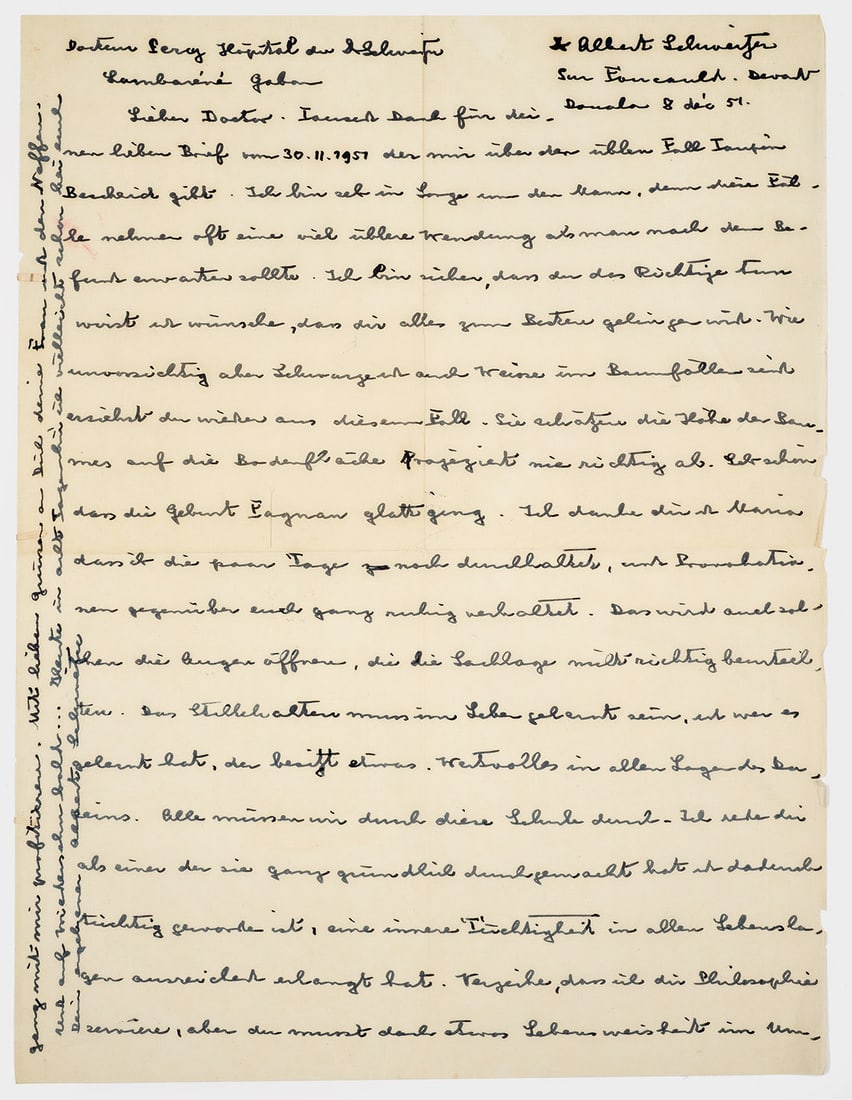 Docteur Percy Hôpital du Dr Schweitzer
Lambaréné Gabon
Dr Albert Schweitzer
Sur Foucauld. Devant
Douala 8 déc 51.
Lieber Doctor. Tausend Dank für dei-
nen lieben Brief vom 30.11.1951 der mir über den üblen Fall
Bescheid gibt. Ich bin sehr in Sorge um den Mann, denn diese Fäl-
le nehmen oft eine viel üblere Wendung als man nach dem Be-
fund erwarten sollte. Ich bin sicher, dass du das Richtige tun
wirst u wünsche, dass dir alles zum Besten gelingen wird. Wie
unvorsichtig aber Schwarze u auch Weisse im Baumfällen sind
ersiehst du wieder aus diesem Fall. Sie schätzen die Höhe der Bäu-
mes auf die Bodenfläche projeziert nie richtig ab. Sehr schön
dass die Geburt Fagnan glatt ging. Ich danke dir u Maria
dass ihr die paar Tage noch durchhaltet, und Provokatio-
nen gegenüber euch ganz ruhig verhaltet. Das wird auch sol-
chen die Augen öffnen, die die Sachlage nicht richtig beurteil-
ten. Das Stillehalten muss im Leben gelernt sein, u wer es
gelernt hat, der besitzt etwas Wertvolles in allen Lagen des Da-
seins. Alle müssen wir durch diese Schule durch. Ich rede dir
als einer der sie ganz gründlich durchgemacht hat u dadurch
tüchtig geworden ist, eine innere Tüchtigkeit in allen Lebensla-
gen ausreichend erlangt hat. Verzeihe, dass ich dir Philosophie
serviere, aber du musst doch etwas Lebensweisheit im Um-
gang mit mir profitieren. Mit lieben Grüssen an Dich deine Frau und den Neffen.
Und auf Wiedersehn bald... Heute in acht Tagen bin ich vielleicht schon bei euch
Dein ergebener Albert Schweitzer